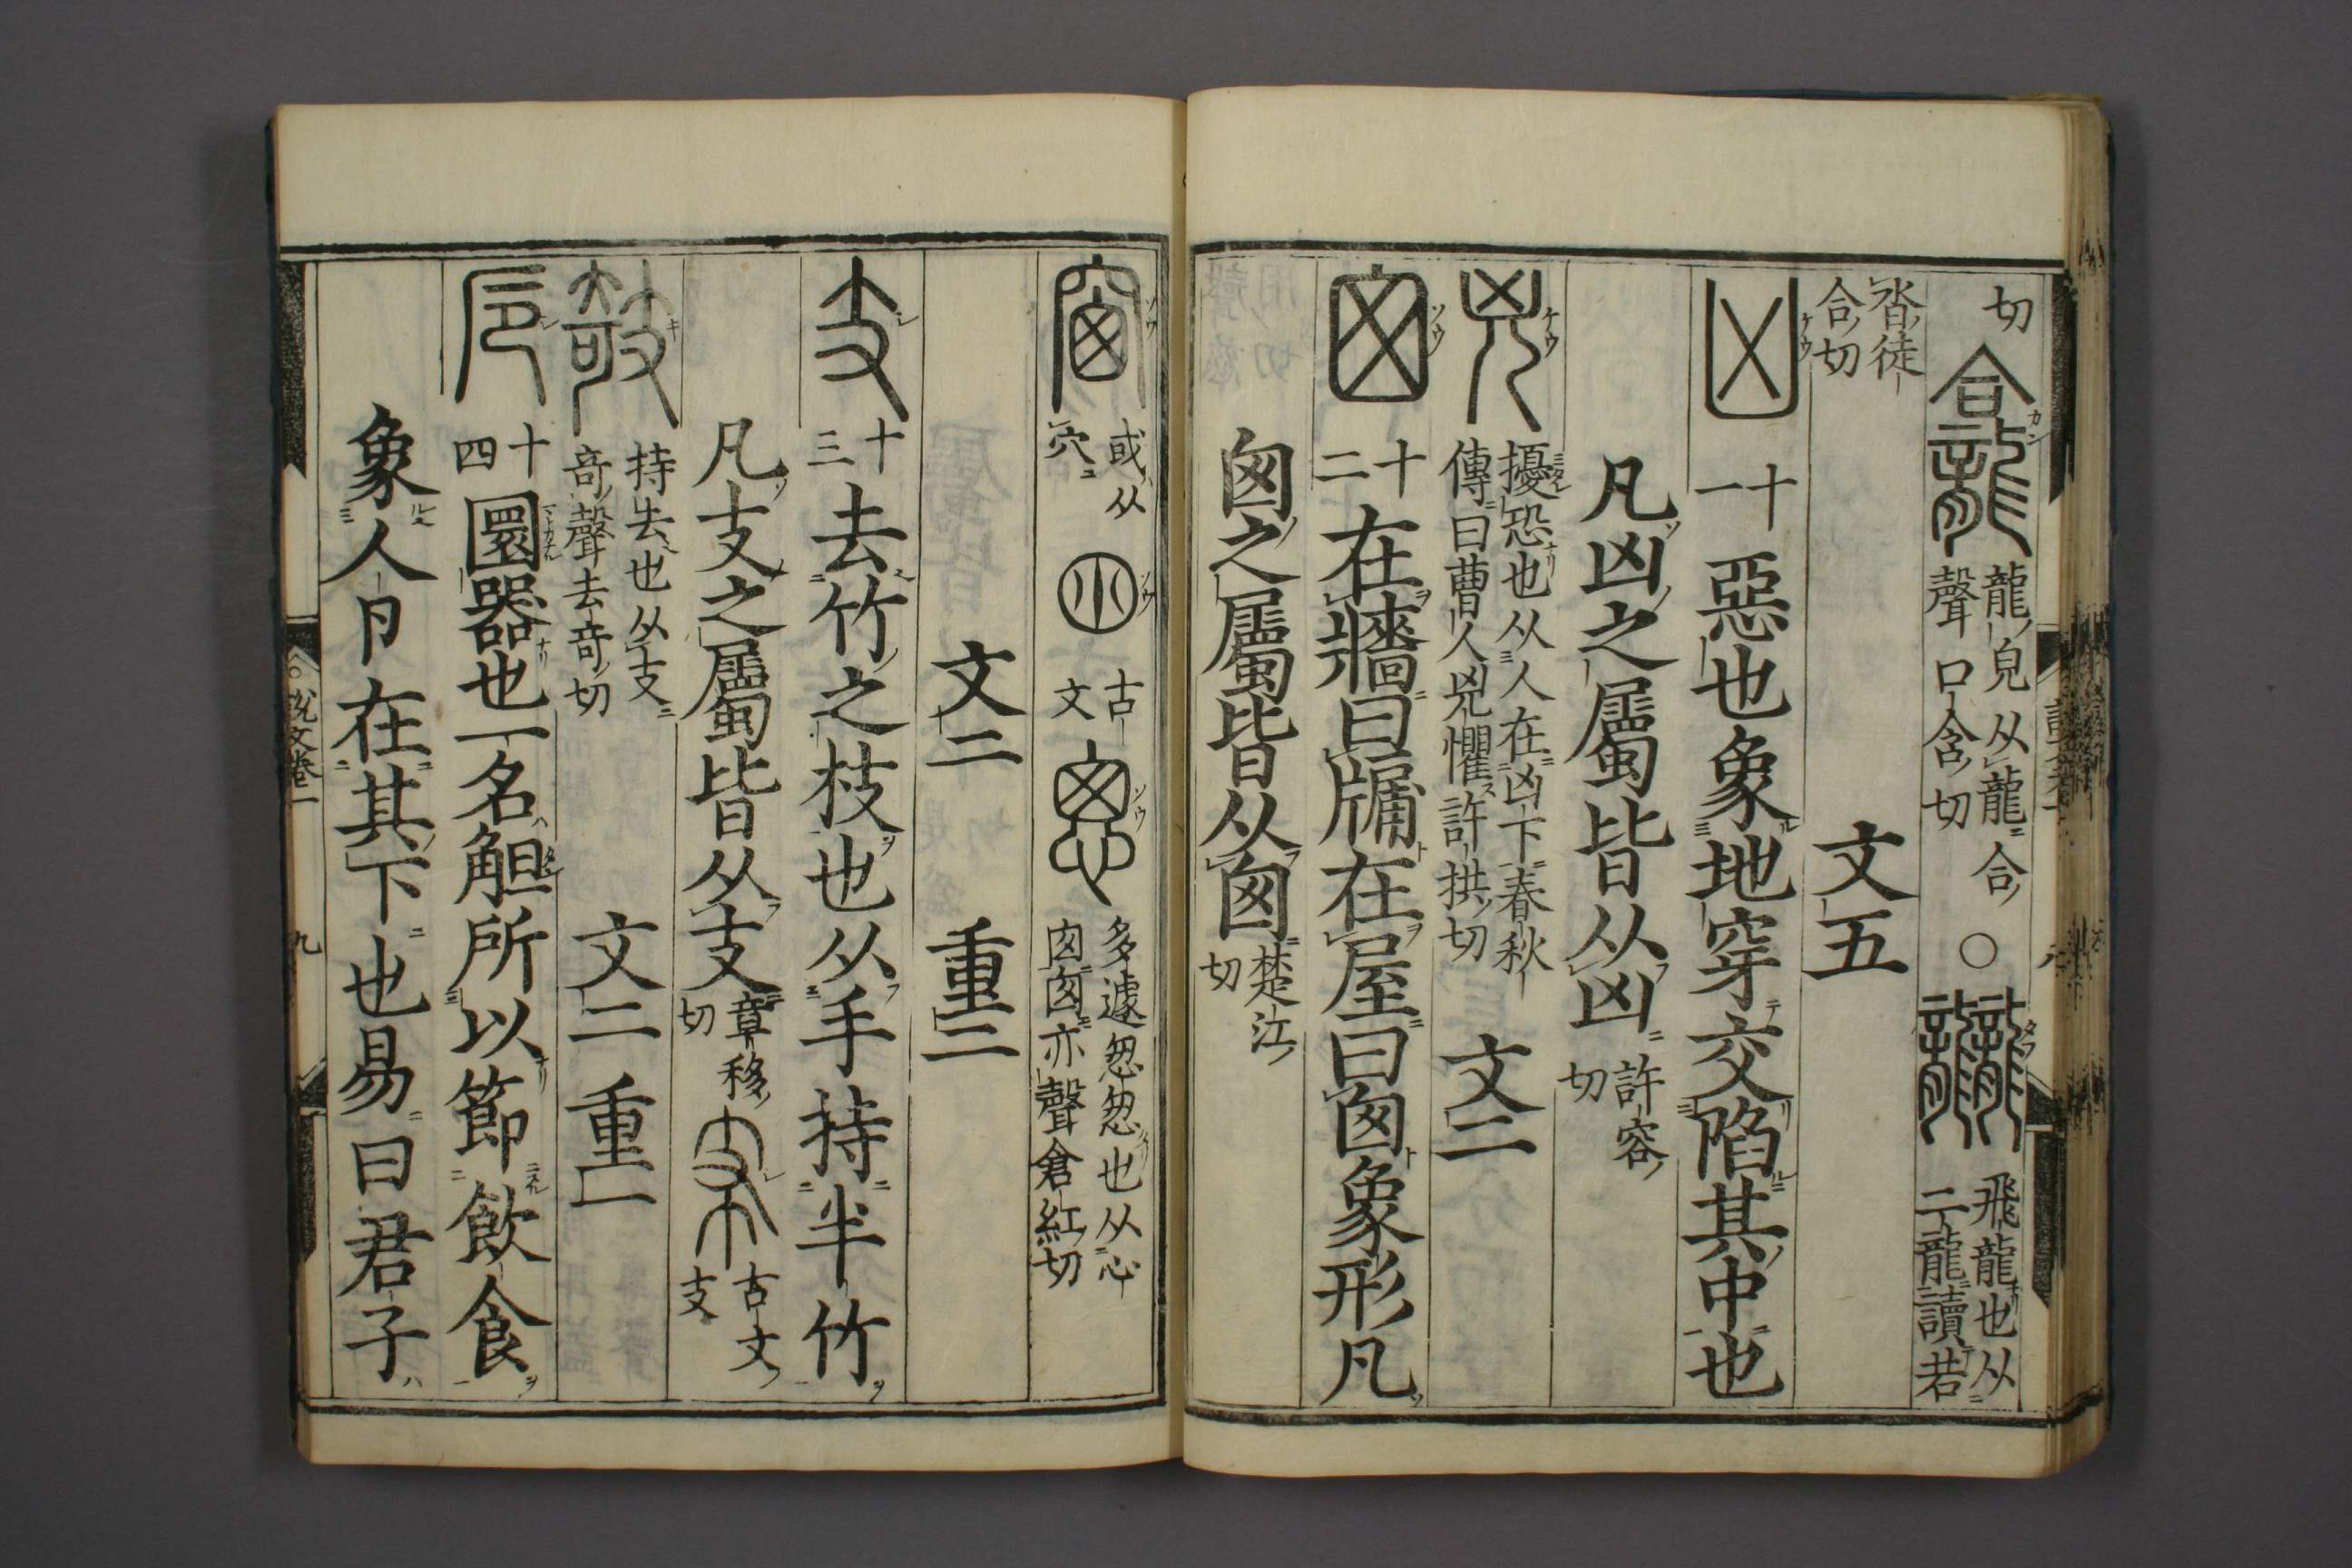 切 龕 龍皃从龍合
聲 口含切 ○ 龖 飛龍也从
二龍讀若
沓徒
合切 文五
凶 十一 惡也象地穿交陷其中也
凡凶之屬皆从凶 許容
切
兇 擾恐也从人在凶下春秋
傳曰曹人兇懼許拱切 文二
囱 十二 在牆曰牖在屋曰囱象形凡
囱之屬皆从囱 楚江
切
窗 或从
穴 古
文 悤 多遽怱怱也从心
囱囱亦聲倉紅切
文二 重二
支 十三 去竹之枝也从手持半竹
凡支之屬皆从支 章移
切 古文
支
攲 持去也从支
奇聲去奇切 文二 重一
卮 十四 圜器也一名觛所以節飲食
象人卪在其下也易曰君子
説文卷一 九